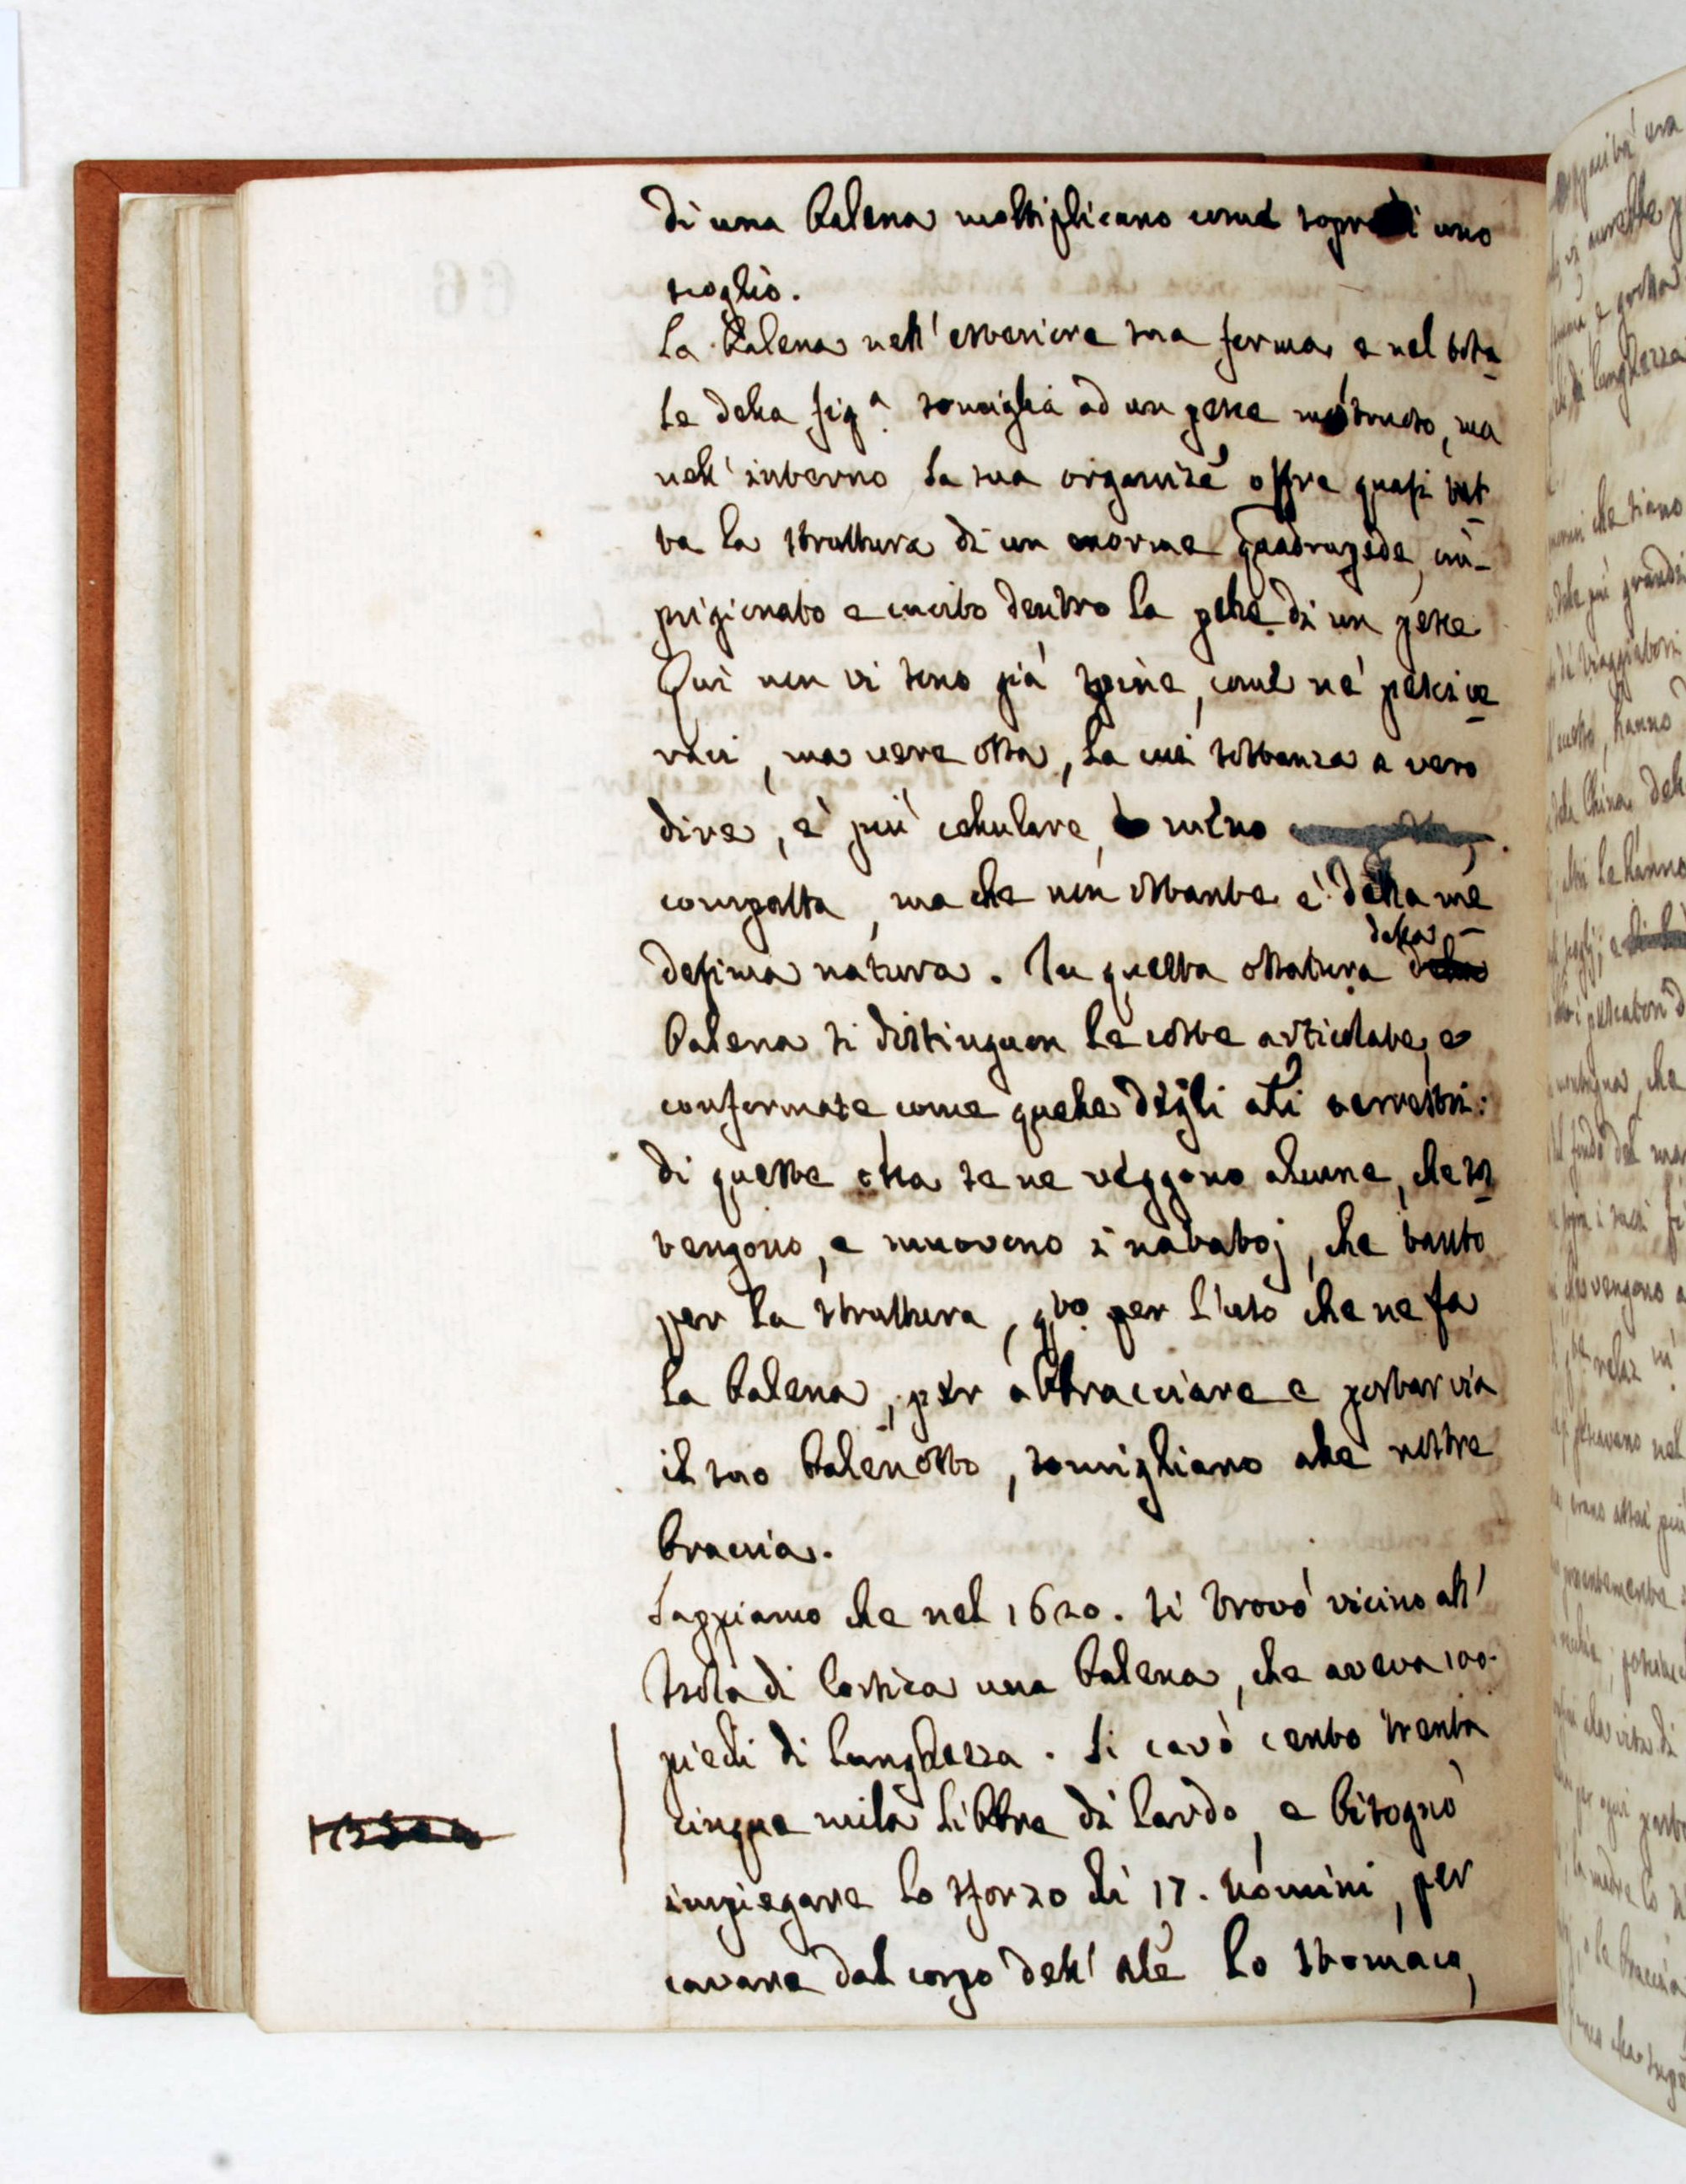 di una Balena moltiplicano come sopra di uno
scoglio.
La Balena nell' esteriore sua forma, e nel tota-
le della fig.ª somiglia ad un pesce mostruoso, ma
nell' interno la sua organizẽ offre quasi tut-
ta la struttura di un enorme quadrupede, im-
prigionato e cucito dentro la pelle di un pesce.
Qui non vi sono già spine, come né pesci ve-
raci, ma vere ossa, la cui sostanza a vero
dire, è più cellulare, meno
compatta, ma che non ostante è della me-
desima natura. In questa ossatura della
della
Balena si distinguon le coste articolate, e
conformate come quelle degli ali terrestri:
di queste ossa se ne veggono alcune, che so-
tengono, e muovono i natatoj, che tanto
per la struttura, qto per l'uso che ne fa
la Balena, per abbracciare e portar via
il suo Balenotto, somigliano alle nostre
braccia.
Sappiamo che nel 1620. si trovò vicino all'
Isola di Corsica una Balena, che aveva 100.
piedi di lunghezza. Si cavò cento trenta
cinque mila libbre di lardo, e bisognò
impiegare lo sforzo di 17. uomini, per
cavare dal corpo dell' ale lo stomaco,